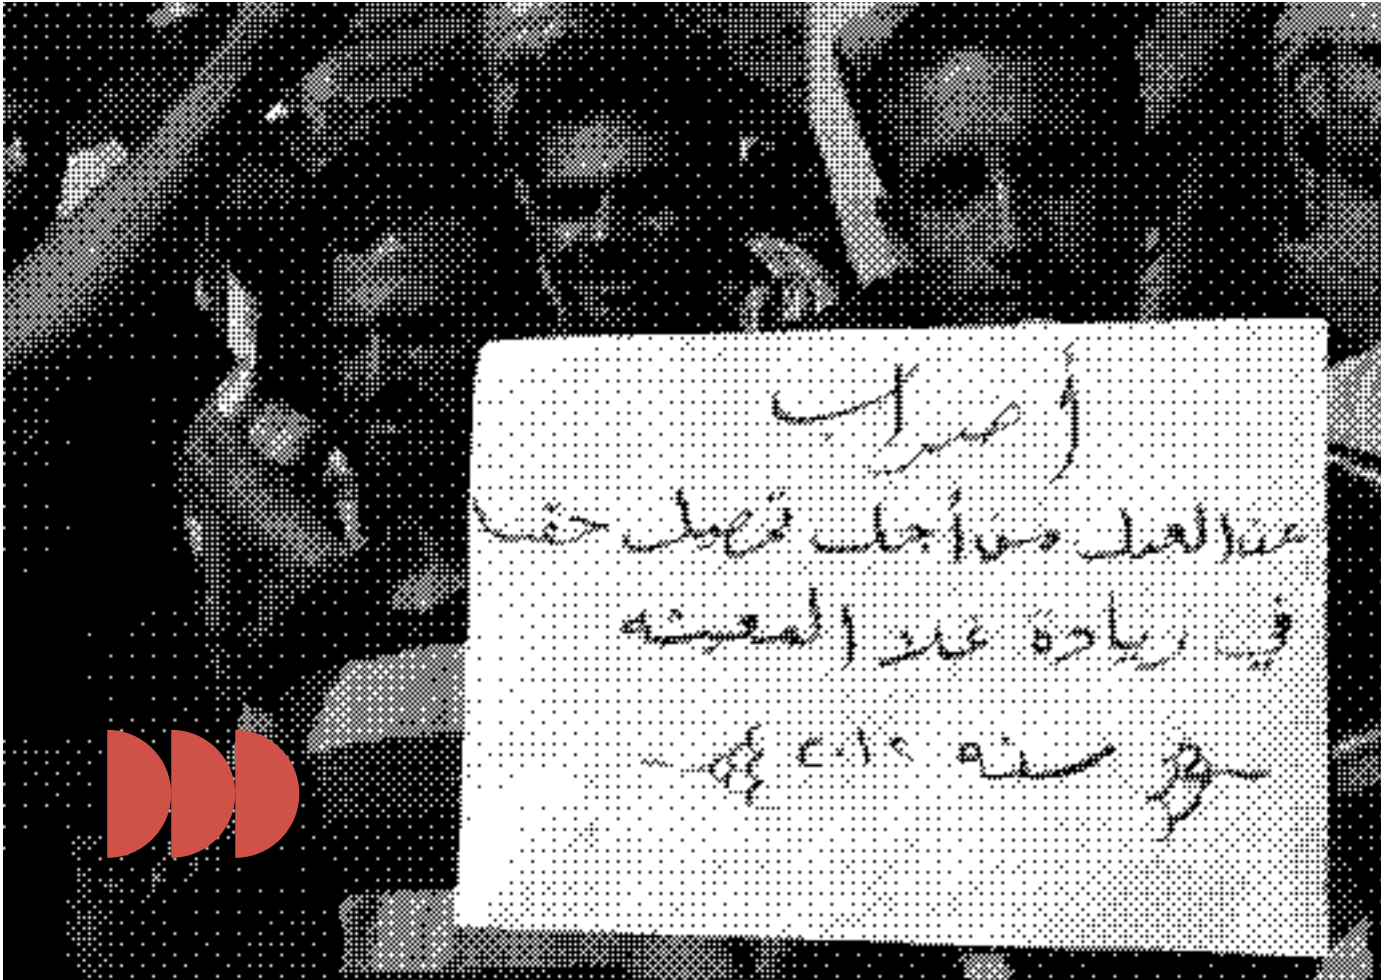 أضراب
عن العمل من أجل تحصيل حقنا
في زيادة غلاء المعيشه
سنه ٢٠١٢